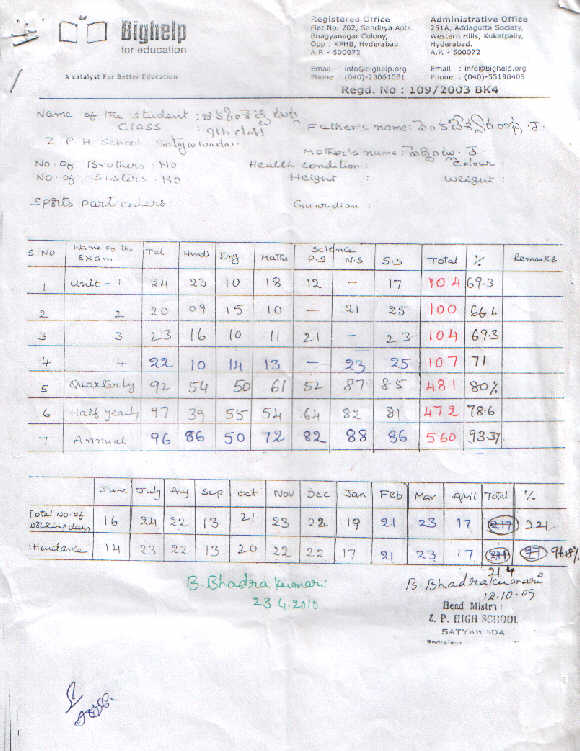 Bighelp
for education
A catalyst For Better Education
Registered Office
Flat No. 202, Sandhya Apts
Bhagyanagar Colony,
Opp : KPHB, Hyderabad
A.P. - 500072
Email : info@bighelp.org
Phone : (040)-23061081
Administrative Office
251A, Addagutta Society,
Western Hills, Kukatpally,
Hyderabad.
A.P. - 500072
Email : info@bighelp.org
Phone : (040)-55190405
Regd. No : 109/2003 BK4
Name of the student :
CLASS : 9th class
Father's name:
Z P H School
Mother's name:
No. of Brothers : NO Health condition : Colour
No. of Sisters : NO Height : Weight :
Guardian :
S.NO Name of the Exam Tel Hindi Eng Maths Science P.S N.S S.S Total % Remarks
1 Unit - 1 24 23 10 18 12 – 17 104 69.3
2 2 20 09 15 10 – 21 25 100
3 3 23 16 10 11 21 – 23 104 69.3
4 4 22 10 14 13 – 23 25 107 71
5 Quarterly 92 54 50 61 52 87 85 481 80%
6 Half yearly 97 39 55 54 64 82 81 472 78.6
7 Annual 96 86 50 72 82 88 86 560 93.3%
June July Aug Sep Oct Nov Dec Jan Feb Mar April Total %
Total No. of working days 16 24 22 13 21 23 22 19 21 23 17 221
Attendance 14 23 22 13 20 22 22 17 21 23 17
214
B. Bhadra kumari
23.4.2010
B. Bhadrakumari
12.10.09
Head Mistri :
Z. P. HIGH SCHOOL